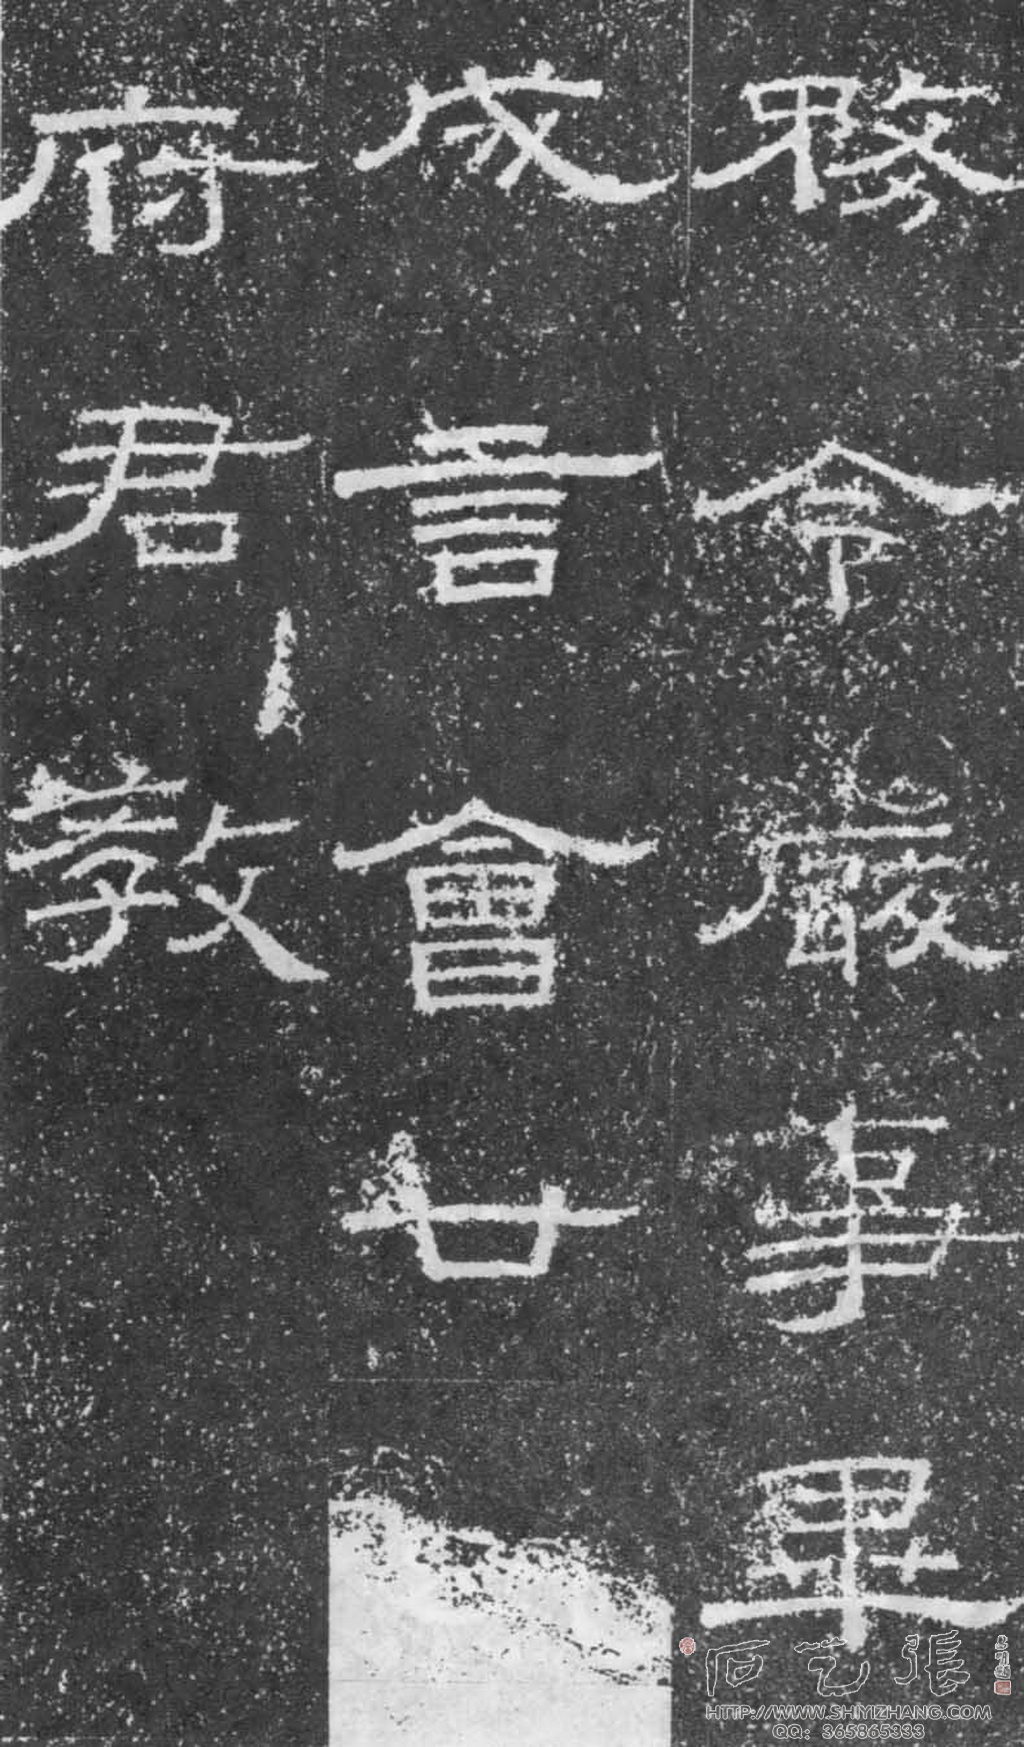 務令嚴事畢
成言會廿
府君教
張艺石
HTTP://WWW.SHIYIZHANG.COM
QQ: 365865333